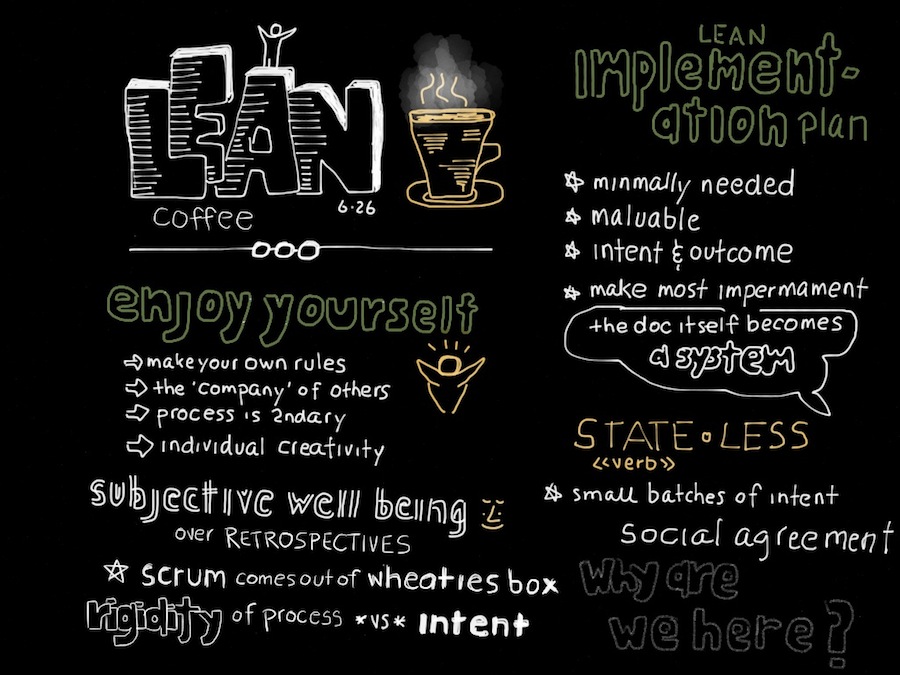 LEAN
coffee
6.26
enjoy yourself
make your own rules
the 'company' of others
process is 2ndary
individual creativity
subjective well being
over RETROSPECTIVES
scrum comes out of wheaties box
rigidity of process *vs* intent
LEAN
implement-
ation plan
minmally needed
maluable
intent & outcome
make most impermament
the doc itself becomes
a system
STATE•LESS
<<verb>>
small batches of intent
social agreement
why are
we here?